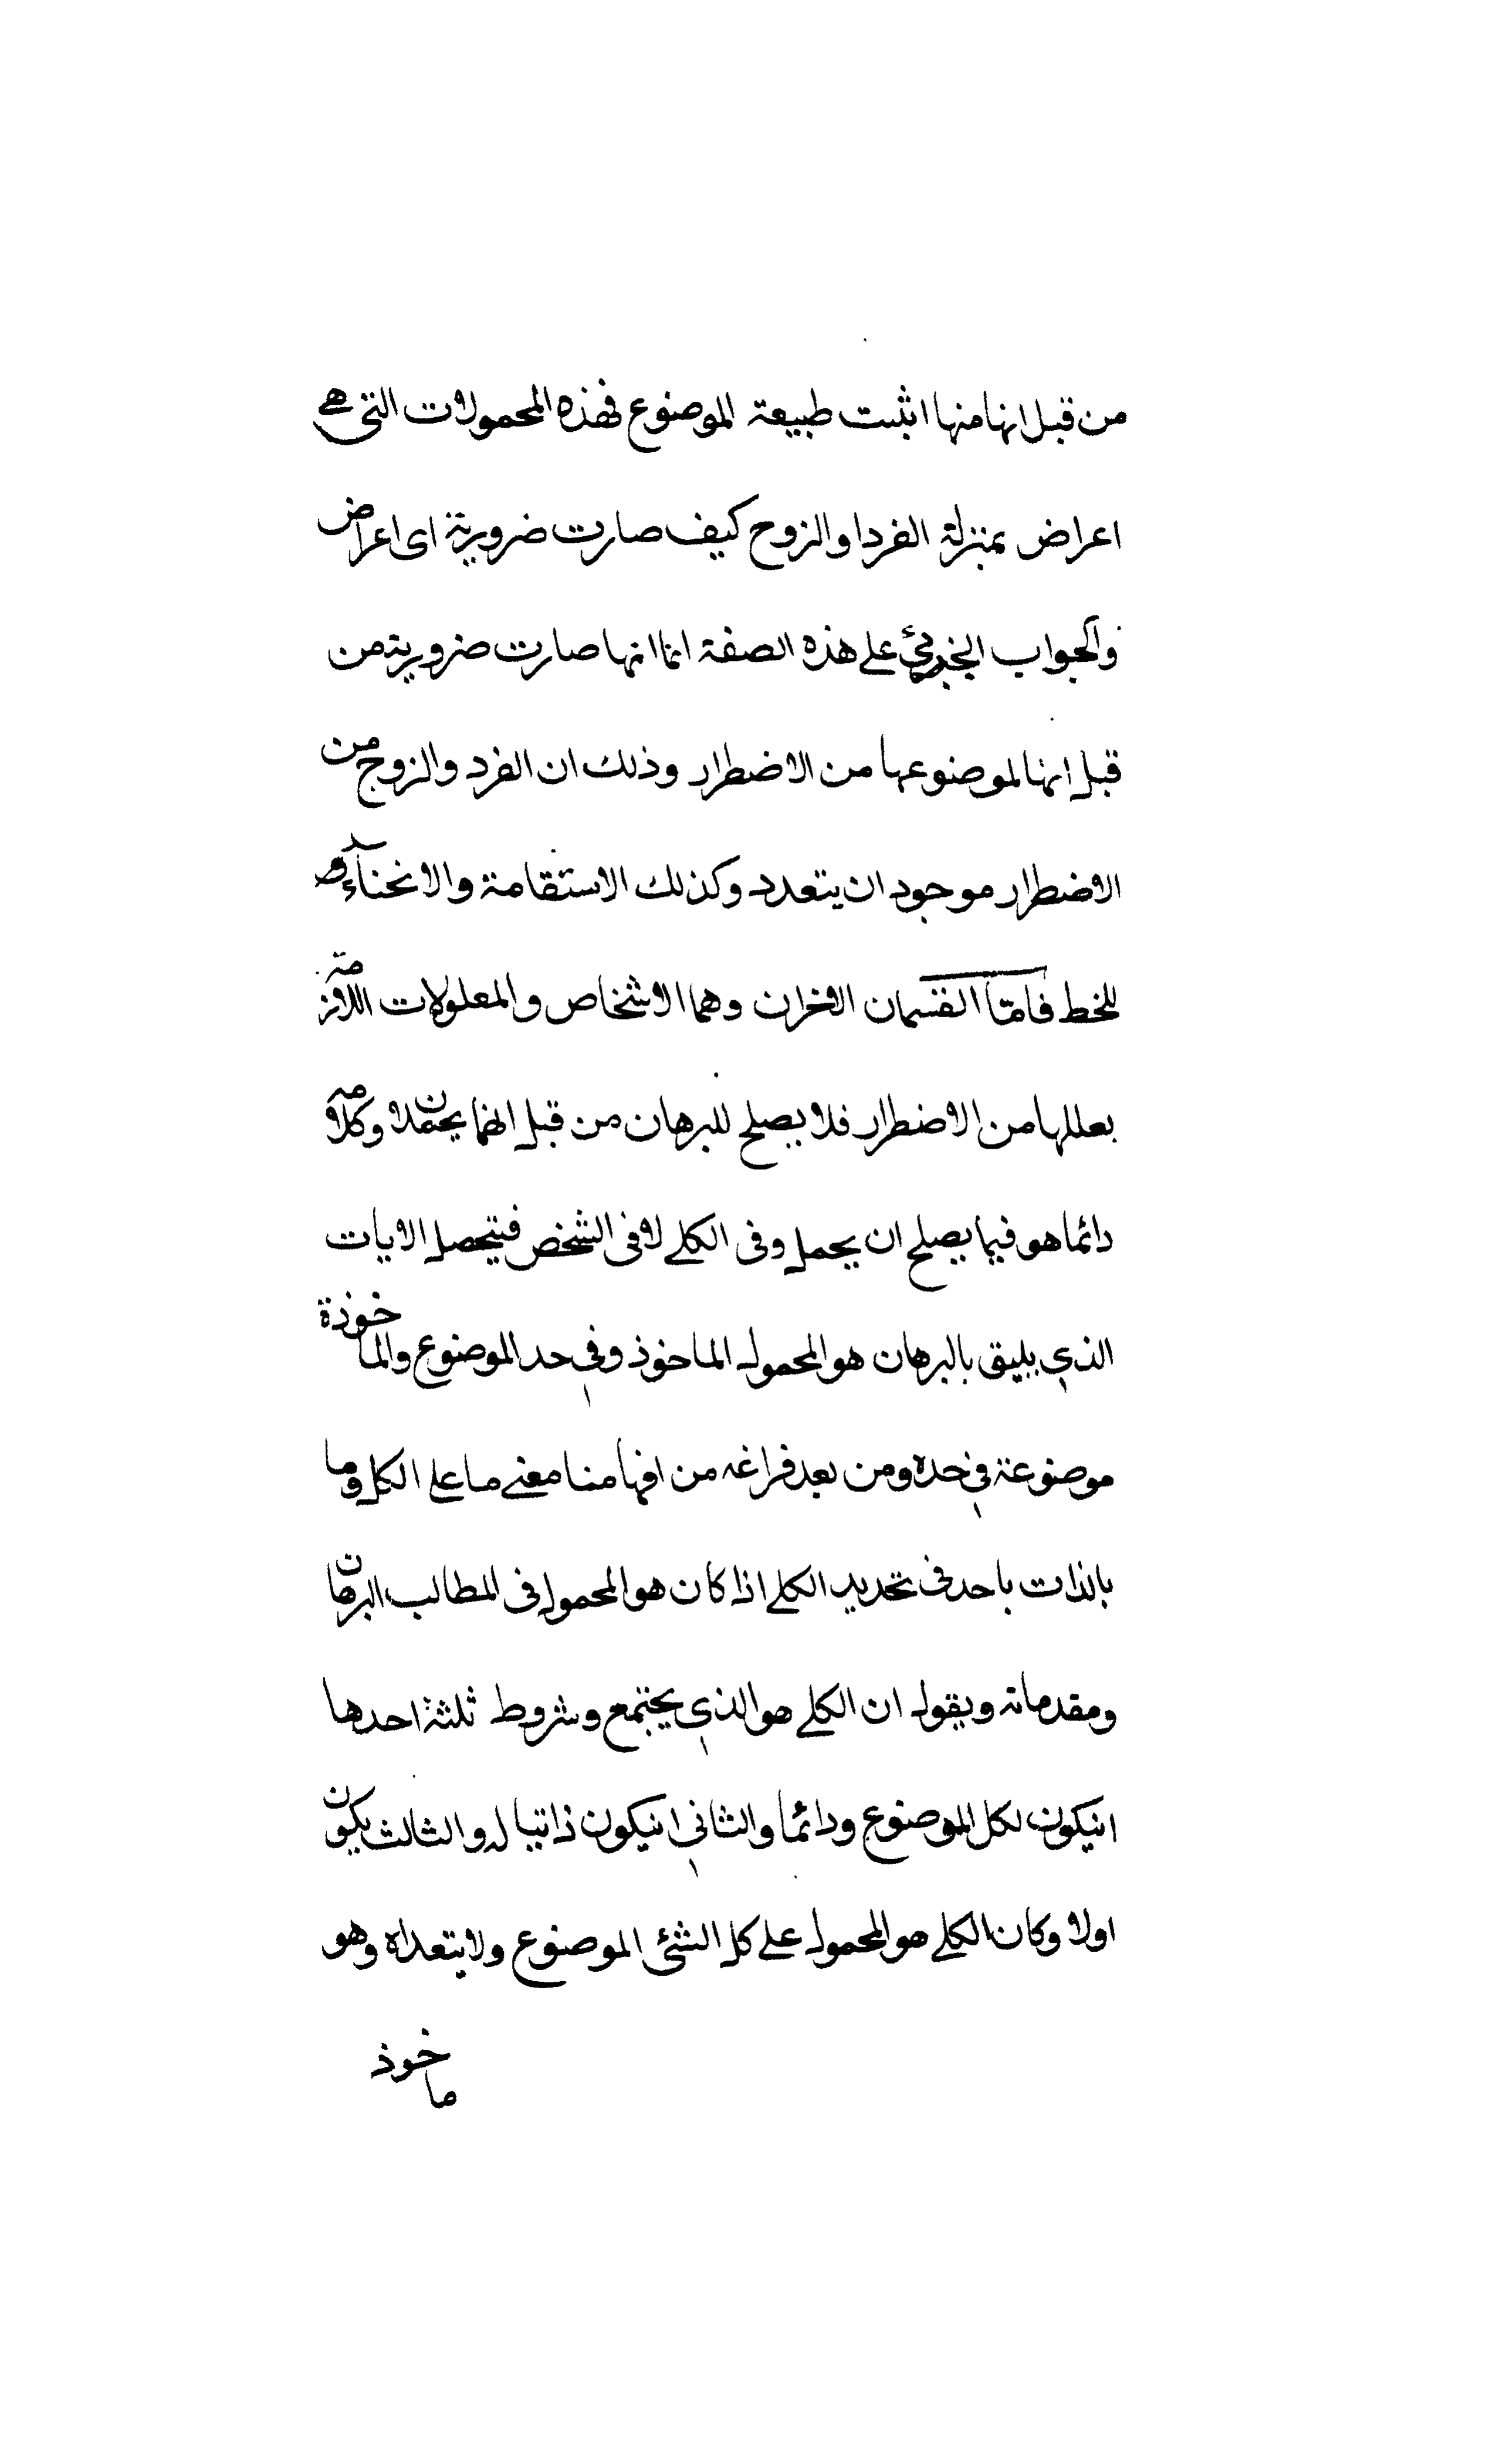 من قبل انها منها اثبتت طبيعة الموضوع فهذه المحمولات التى هى
اعراض بمنزلة الفرد او الزوج كيف صارت ضرورية اى اعراض
والجواب على هذه الصفة انما انها صارت ضرورية من
قبل انها لموضوعها من الاضطرار وذلك ان الفرد والزوج من
الاضطرار موجود ان يتعدد وكذلك الاستقامة والانحناء
للخط فاما القسمان الاخران وهما الاشخاص والمعلولات اللازمة
بعللها من الاضطرار فلا يصلح للبرهان من قبل انهما
دائما هو فيما يصلح ان يحمل وفى الكلى لا فى الشخص فيتحصل الايات
الذي يليق بالبرهان هو المحمول الماخوذ وفي حد الموضوع والماخوذة
موضوعة في حده ومن بعد فراغه من افهامنا معنى ما على الكل وما
بالذات ياخذ فى تحديد الكلى اذا كان هو المحمول فى المطالب البرهان
ومقدماته ويقول ان الكلى هو الذي يجتمع وشروط ثلثة احدها
انيكون لكل الموضوع ودائما والثاني انيكون ذاتيا له والثالث يكون
اولا وكان الكلى هو المحمول على كل الشئ الموضوع ولا يتعداه وهو
ماخوذ